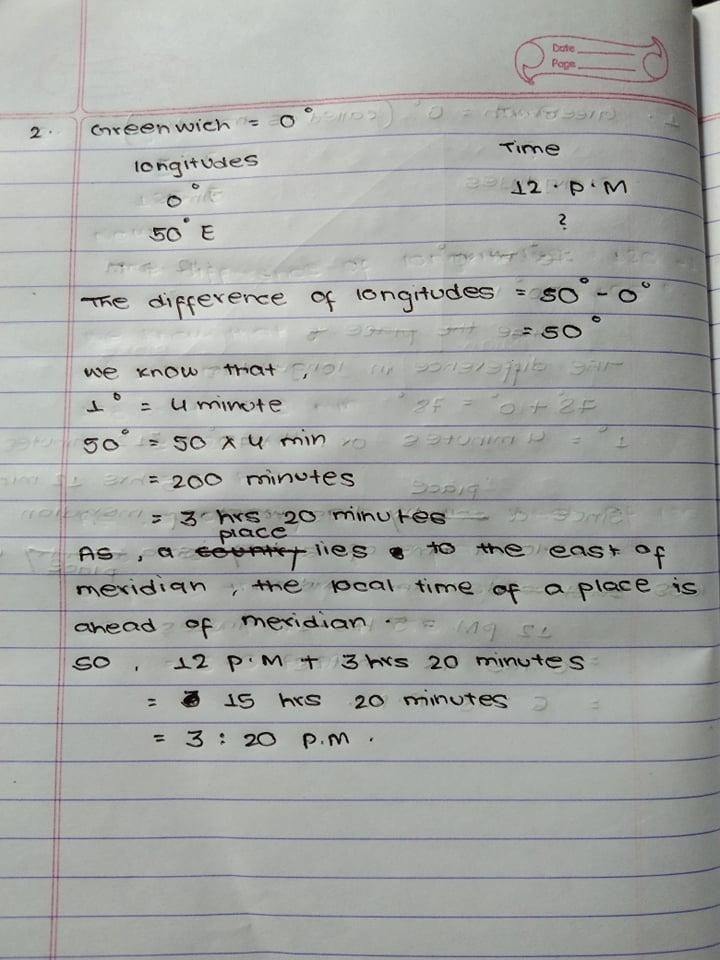 Date
Page
2. Greenwich = 0°
longitudes Time
0° 12.P.M
50° E ?
The difference of longitudes = 50° - 0°
= 50°
we know that,
1° = 4 minute
50° = 50 x 4 min
= 200 minutes
= 3 hrs 20 minutes
place
As, a country lies to the east of
meridian, the local time of a place is
ahead of meridian.
so, 12 P.M + 3 hrs 20 minutes
= 15 hrs 20 minutes
= 3:20 P.M.